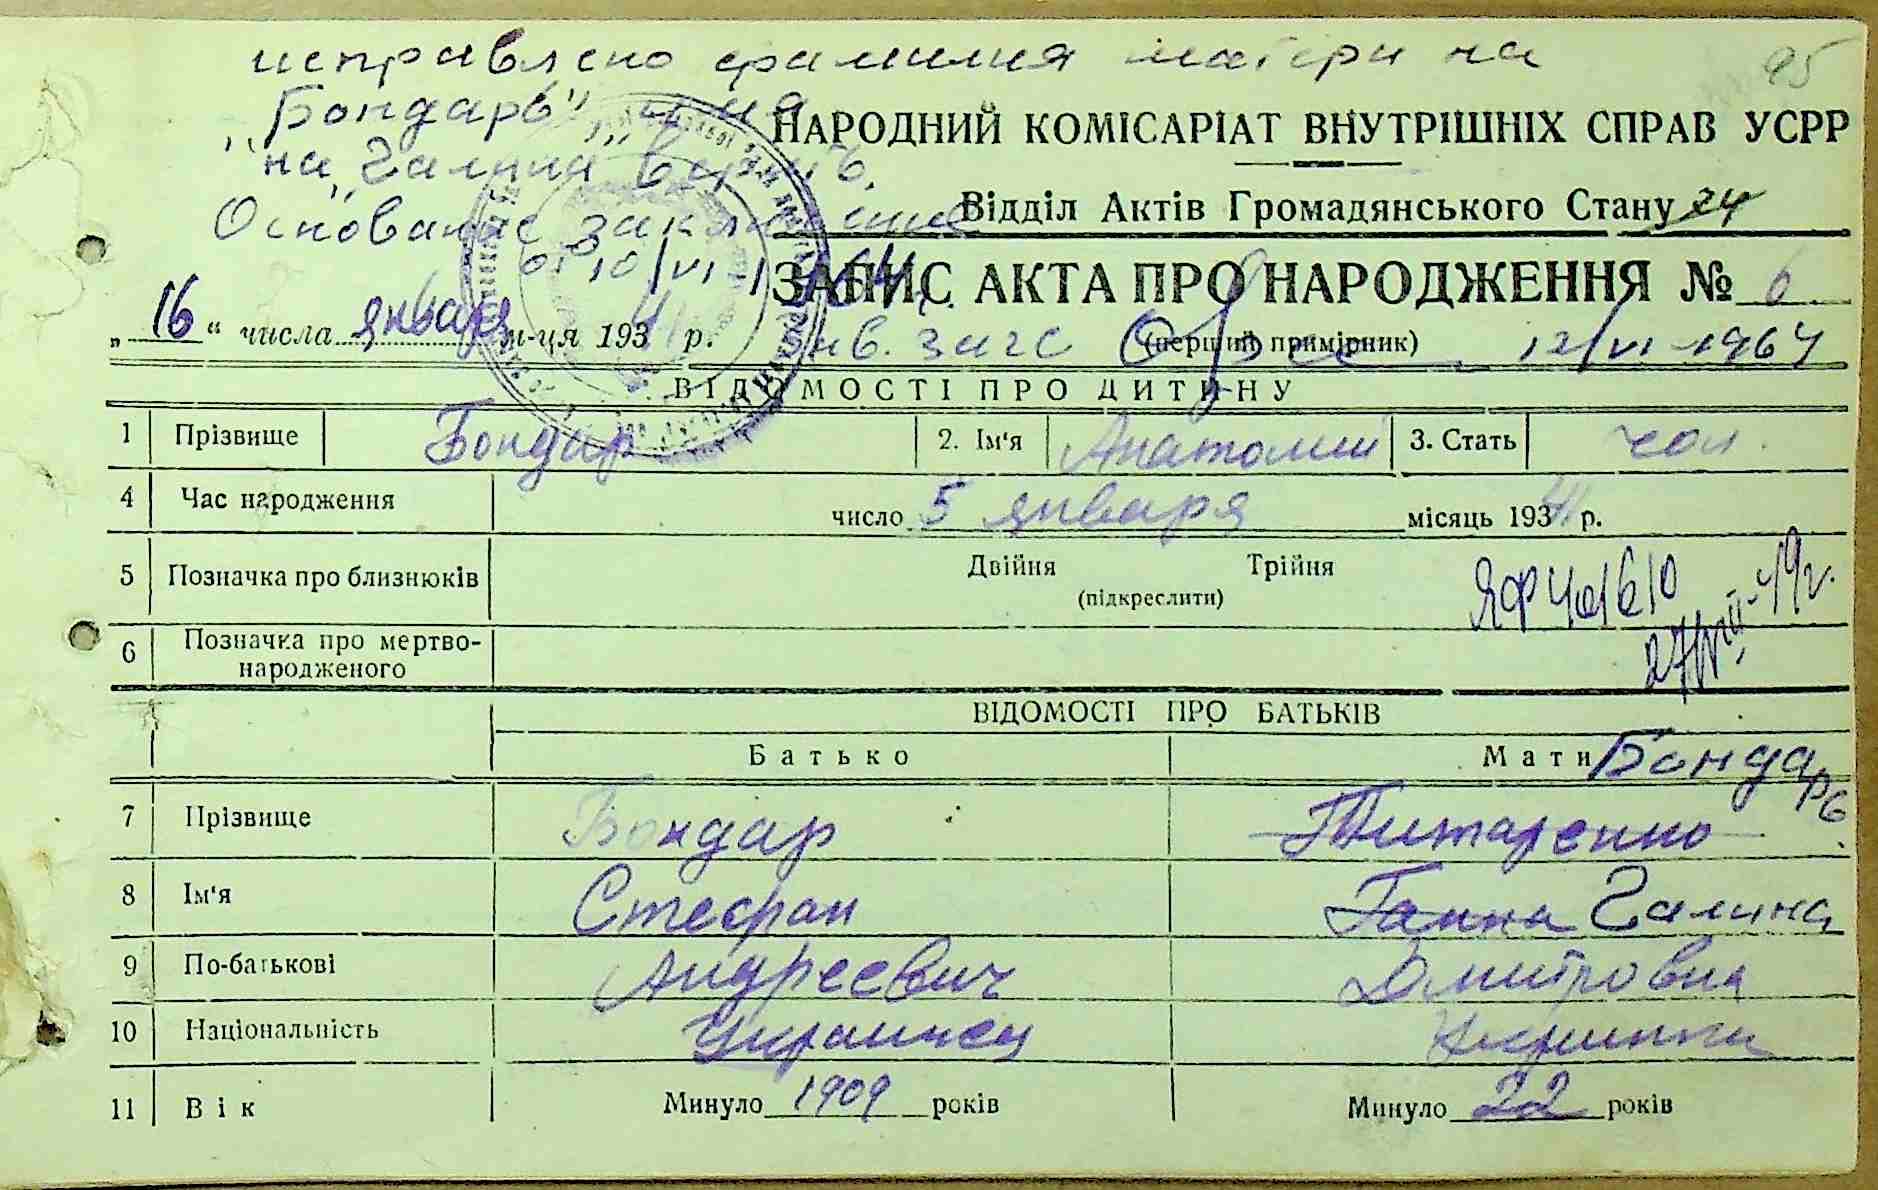 исправлено фамилия матери на
„Бондарь", имя
на „Галина" верить.
Основание заключение
от 10/VI-1964 г.
зав. загс 12/VI-1964
95
НАРОДНИЙ КОМІСАРІАТ ВНУТРІШНІХ СПРАВ УСРР
Відділ Актів Громадянського Стану 24
ЗАПИС АКТА ПРО НАРОДЖЕННЯ № 6
(перший примірник)
„16“ числа января м-ця 1941 р.
ВІДОМОСТІ ПРО ДИТИНУ
1 Прізвище Бондар 2. Ім'я Анатолий 3. Стать чол.
4 Час народження число 5 января місяць 1941 р.
5 Позначка про близнюків Двійня Трійня
(підкреслити)
ЯФ 401610
27/VIII-49г.
6 Позначка про мертво-
народженого
ВІДОМОСТІ ПРО БАТЬКІВ
Батько Мати Бондарь
7 Прізвище Бондар Титаренко
8 Ім'я Стефан Ганна Галина
9 По-батькові Андреевич Дмитровна
10 Національність Украинец Украинка
11 Вік Минуло 1909 років Минуло 22 років